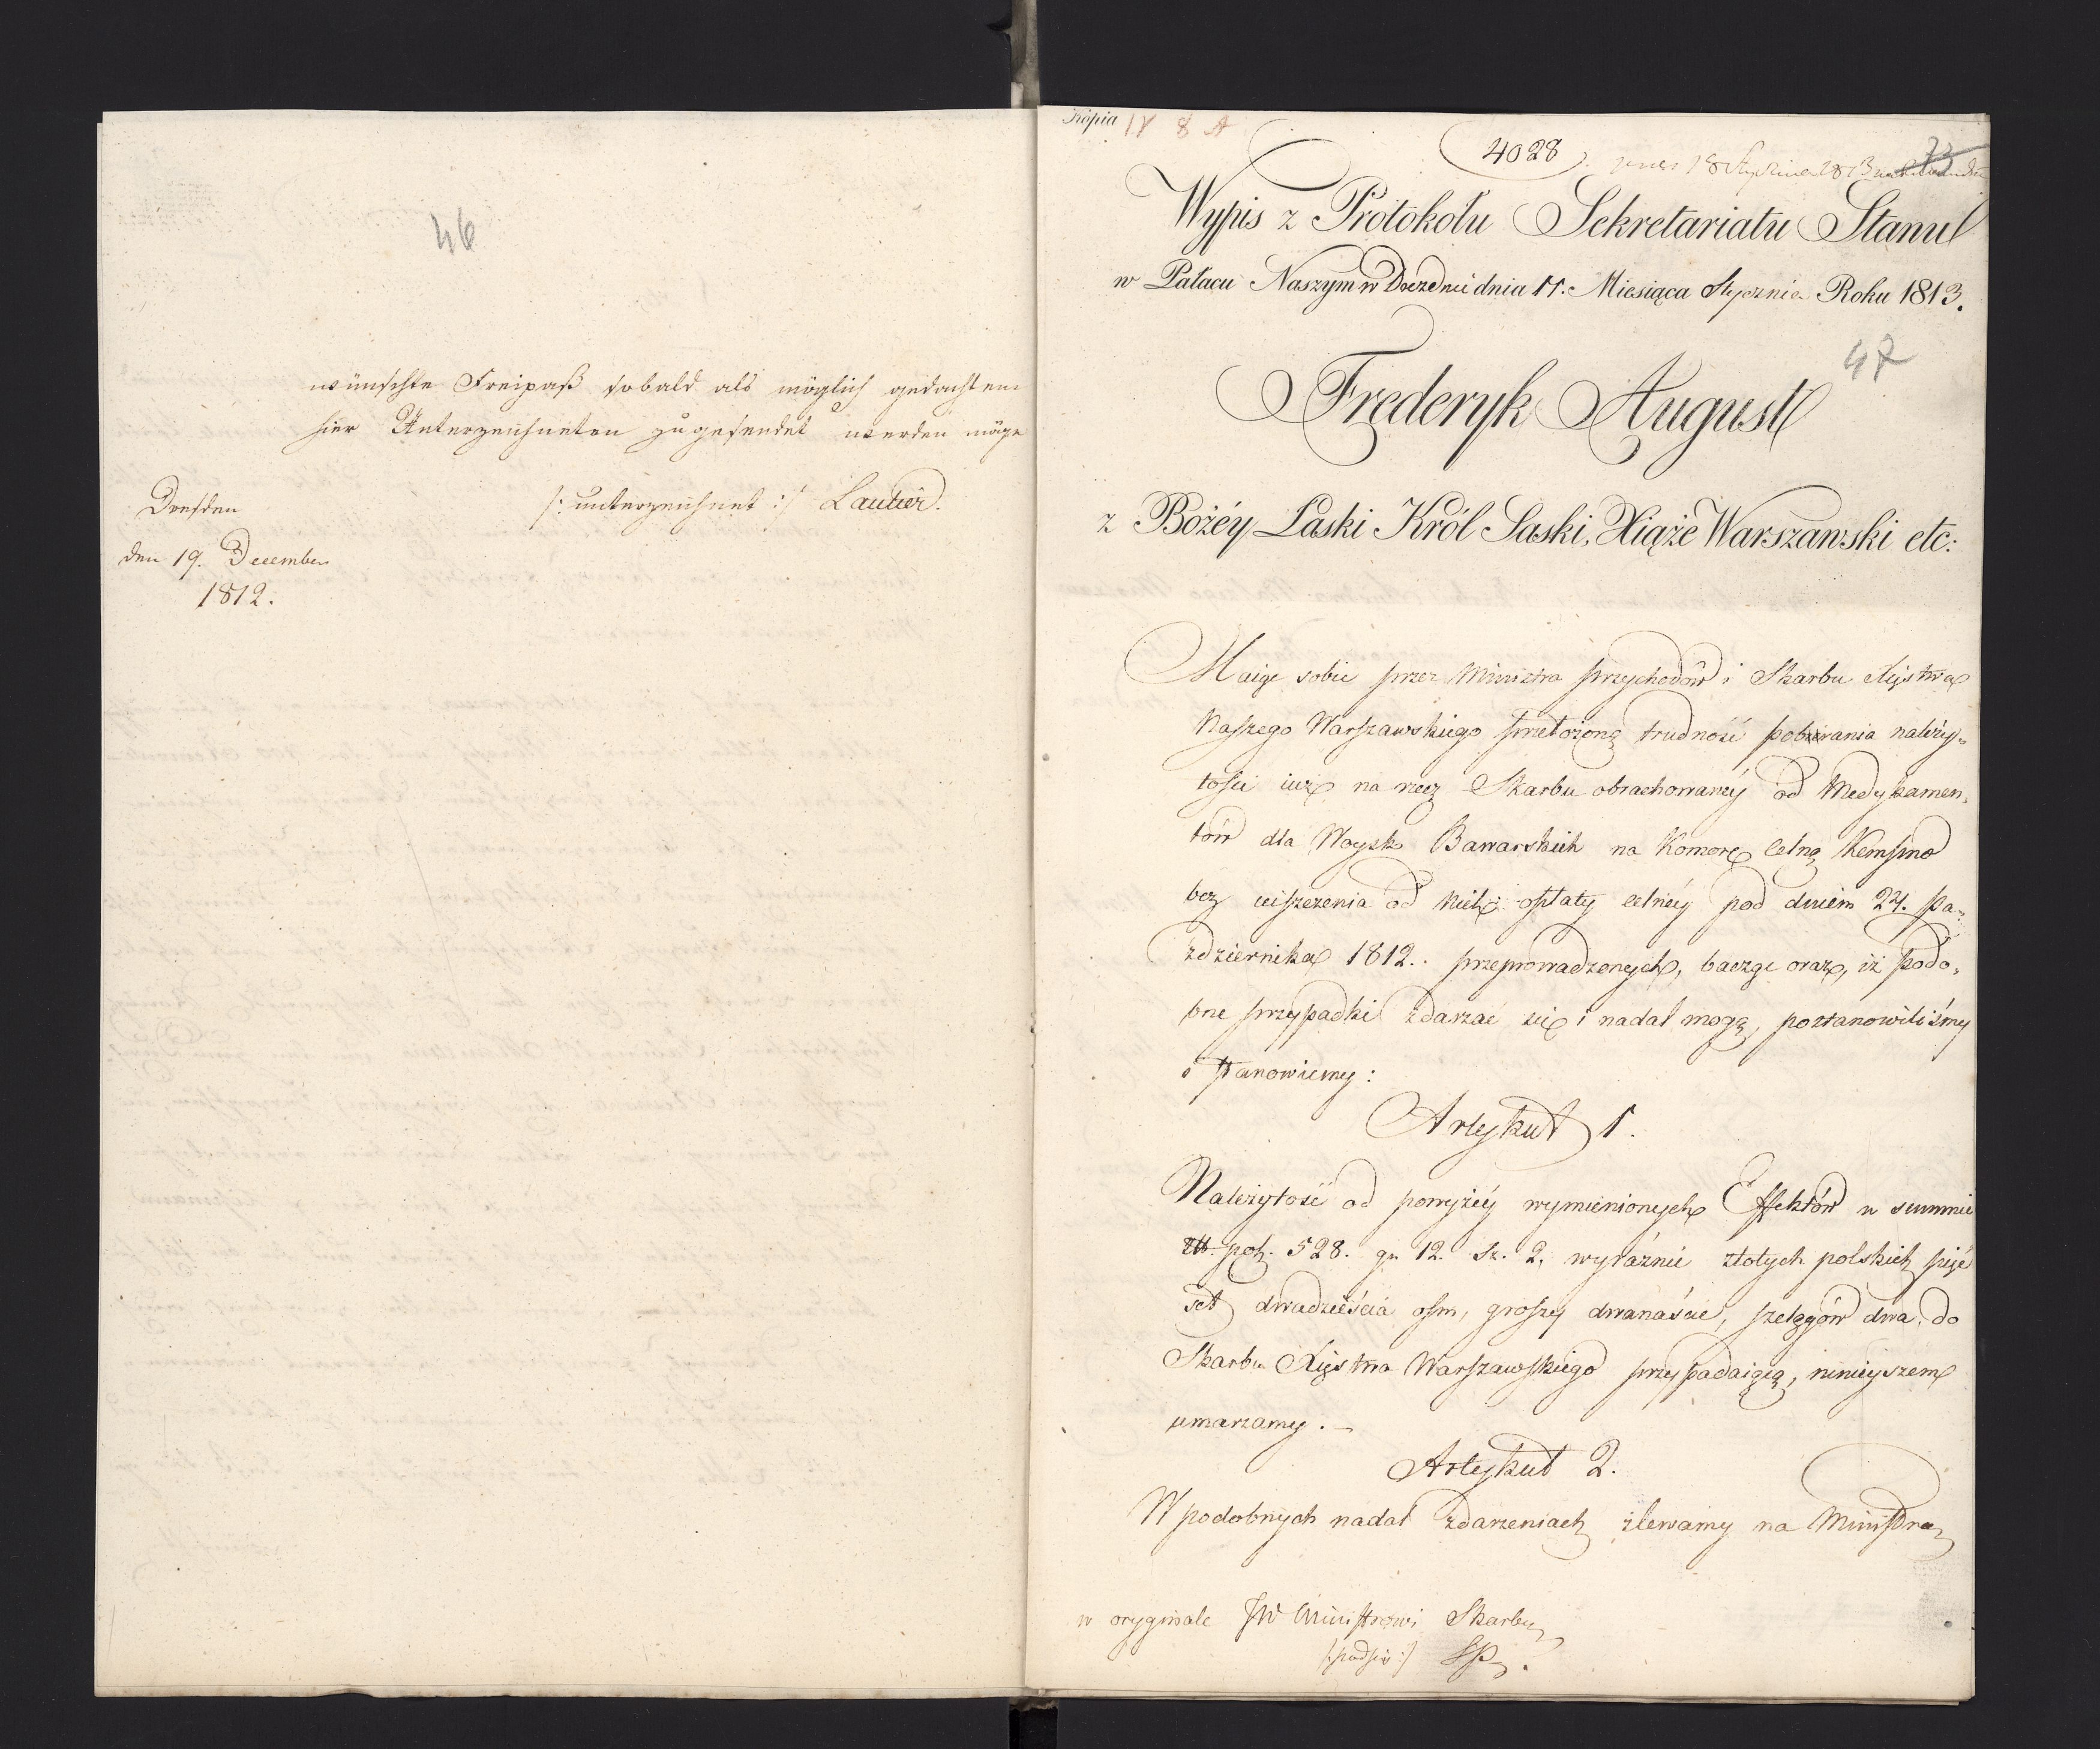 46
wünschte Freipaß sobald als möglich gedachtem
hier Unterzeichneten zugesendet werden möge
/: unterzeichnet :/ Lautier.
Dresden
den 19. December
1812.
Kopia
IX 8 A
4028
18 Stycznia 1813
73
Wypis z Protokołu Sekretariatu Stanu
w Pałacu Naszym w Dreznie dnia 11. Miesiąca Stycznia Roku 1813.
47
Frederyk August
z Bożéy Łaski Król Saski, Xiąże Warszawski etc:
Maiąc sobie przez Ministra Przychodów i Skarbu Xięstwa
Naszego Warszawskiego przełożoną trudność pobierania należy-
tości iuż na rzecz Skarbu obrachowanéy od Medykamen-
tów dla Woysk Bawarskich na Komorę Celną Kempno
bez uiszczenia od nich opłaty celnéy pod dniem 24. Pa-
ździernika 1812. przeprowadzonych, bacząc oraz, iż podo-
bne przypadki zdarzać się i nadal mogą, postanowiliśmy
i stanowiemy:
Artykuł 1.
Należytość od powyżéy wymienionych Effektów w summie
zł. pol. 528. gr. 12. sz. 2. wyraźnie złotych polskich pięć
set dwadzieścia ośm, groszy dwanaście, szelągów dwa, do
Skarbu Xięstwa Warszawskiego przypadaiącą, ninieyszem
umarzamy. –
Artykuł 2.
W podobnych nadal zdarzeniach zlewamy na Ministra
w oryginale JW Ministrowi Skarbu
/: podpis :/